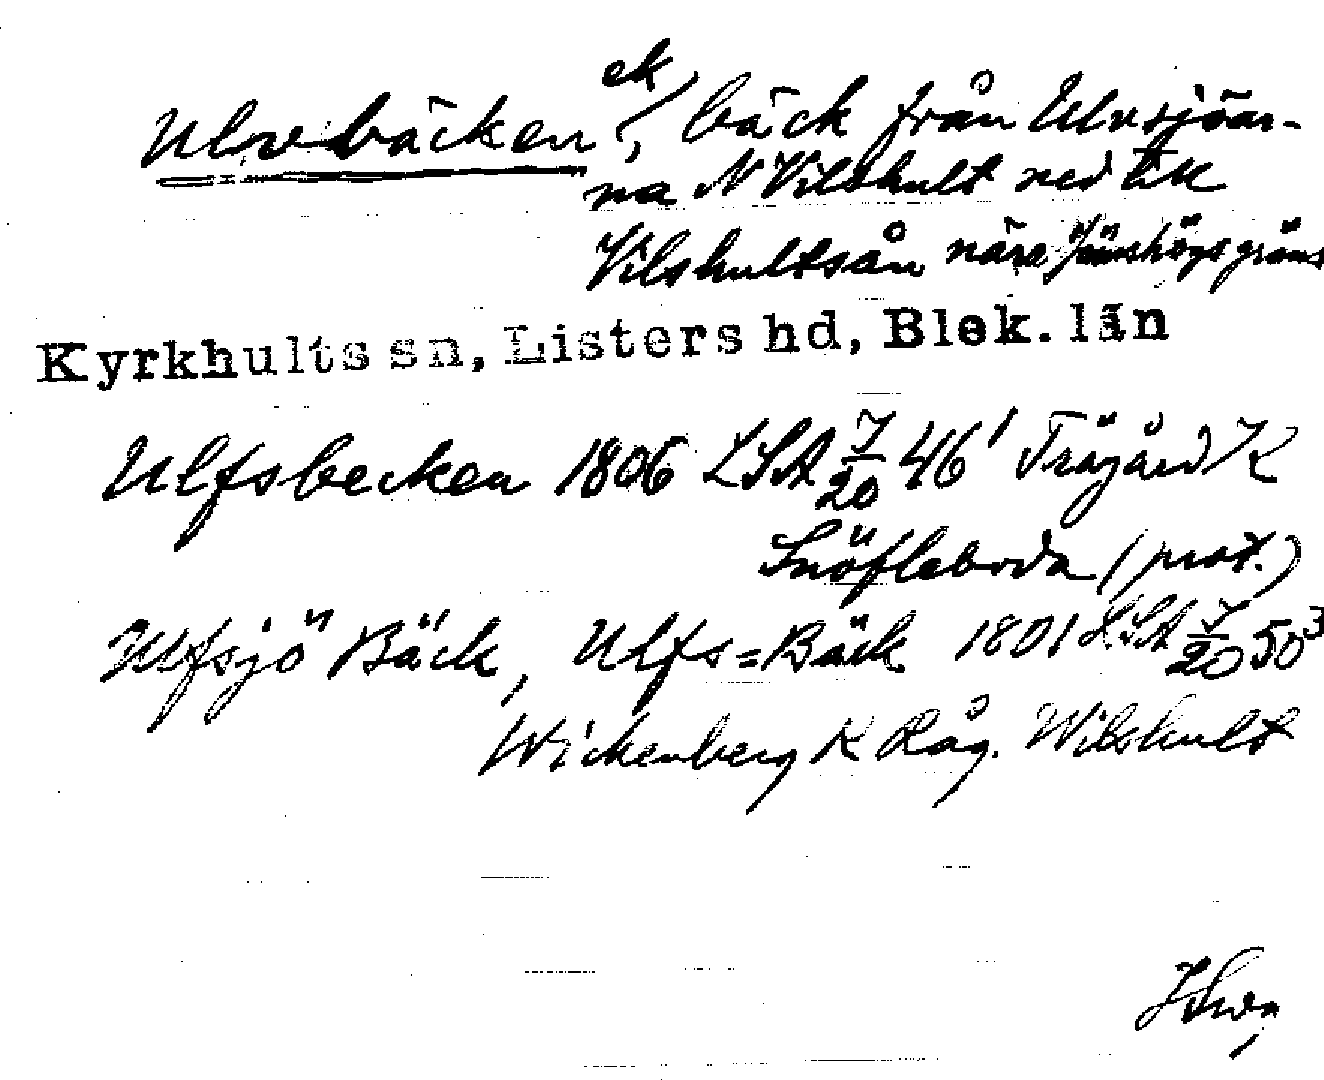 Ulvebäcken, ek bäck från Ulvsjöar-
na N Vilshult ned till
Vilshultsån nära Jämshögs gräns
Kyrkhults sn, Listers hd, Blek. län
Ulfsbecken 1806 LSA 7/20 46' Trägård K
Snöfleboda (prot.)
Ulfsjö Bäck, Ulfs=Bäck 1801 LSA 7/20 50³
Wickenberg K Råg. Wilshult